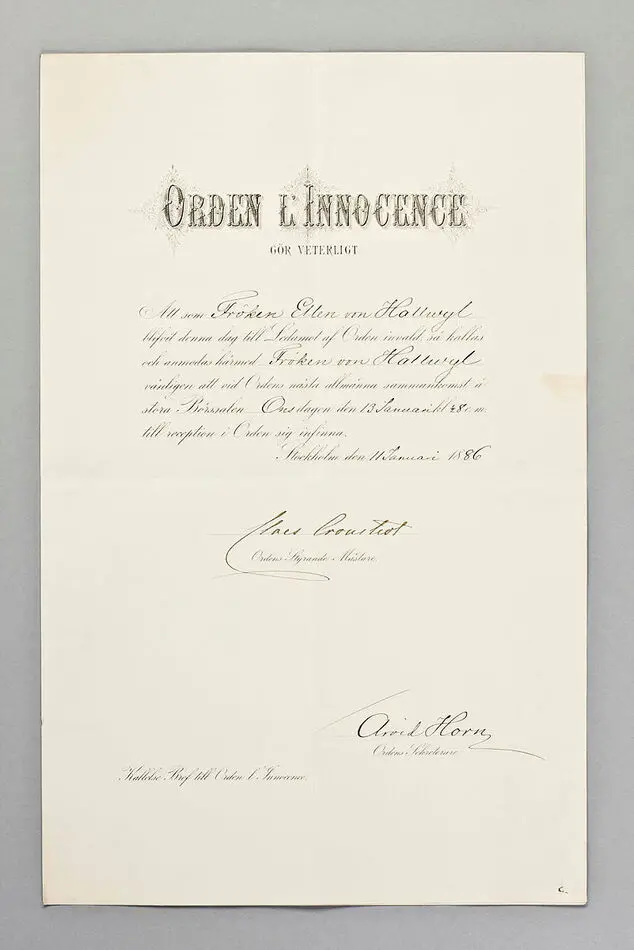 ORDEN L'INNOCENCE
GÖR VETERLIGT
Att som Fröken Ellen von Hallwyl
blifvit denna dag till Ledamot af Orden invald, så kallas
och anmodas härmed Fröken von Hallwyl
vänligen att vid Ordens nästa allmänna sammankomst å
stora Börssalen Onsdagen den 13 Januari kl 1/2 8 e.m.
till reception i Orden sig infinna.
Stockholm den 11 Januari 1886
Claes Cronstedt
Ordens Styrande Mästare.
Arvid Horn
Ordens Sekreterare.
Kallelse Bref till Orden l'Innocence.
c.